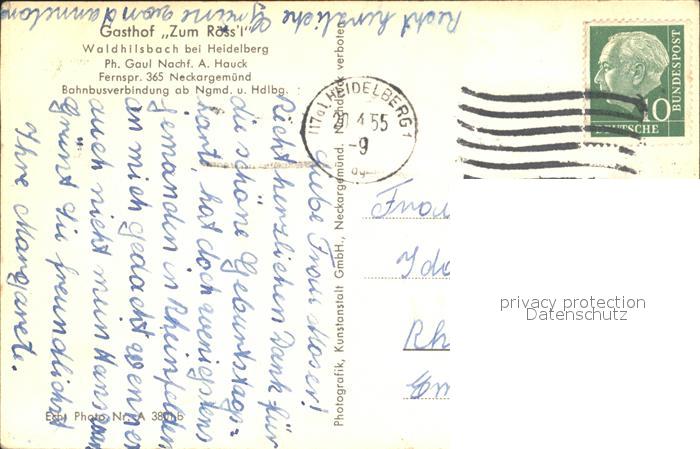 Recht herzliche Grüsse von
Gasthof „Zum Röss'l"
Waldhilsbach bei Heidelberg
Ph. Gaul Nachf. A. Hauck
Fernspr. 365 Neckargemünd
Bahnbusverbindung ab Ngmd. u. Hdlbg.
Liebe Frau Moser!
Recht herzlichen Dank für
die schöne Geburtstags-
kart, hat doch wenigstens
jemanden in Rheinfelden
an mich gedacht wenn er
auch nicht mein Hans war
Grüsst Sie freundlichst
Ihre Margarete.
Echt Photo Nr. A
Photografik, Kunstanstalt GmbH., Neckargemünd. Nachdruck verboten
(17a) HEIDELBERG 1
20.4.55
-9
DEUTSCHE
BUNDESPOST
10
Frau
Ida
Rh
privacy protection
Datenschutz